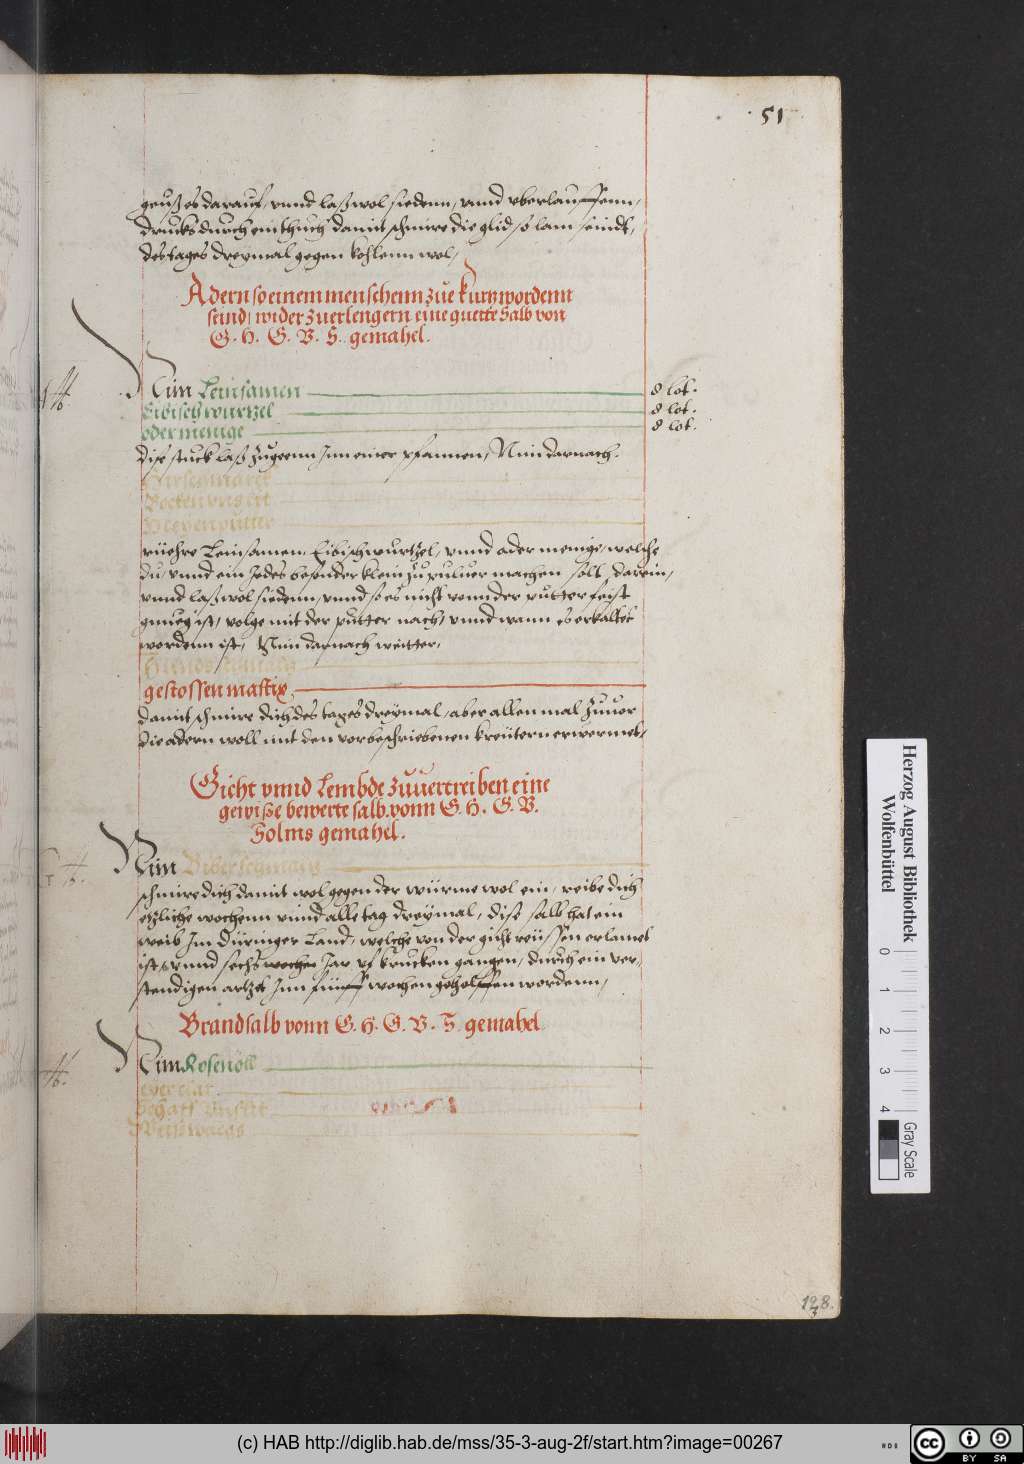 51
geuß es darauf, vnnd laß wol siedenn, vnnd vberlauffenn,
drucks durch ein thuch damit schmire die glid so lam seindt,
des tages dreymal gegen kohlenn wol,
Adern so einem menschenn zue kurtz wordenn
seind, wider zuerlengern eine guette Salb von
G. H. G. V. S. gemahel.
Nim Leinsamen 8 lot.
Eibisch wurtzel 8 lot.
odermenige 8 lot.
dise stuck laß zugeenn Inn einer pfannen, Nim darnach.
Hirschmarck
Bocken vnslit
Meyenputter
rüehre Leinsamen, Eibischwurtzel, vnnd odermenige, welche
du, vnnd ein Jedes besonder klein zu puluer machen solt, darein,
vnnd laß wol siedenn, vnnd so es nicht vonn der putter feist
genueg ist, volge mit der putter nach, vnnd wann es erkaltet
wordenn ist, Nim darnach weitter,
Hundsschmaltz
gestossen mastix,
damit schmire dich des tages dreymal, aber allen mal zuuor
die adern woll mit den vorbeschriebenen kreütern erwermet,
Gicht vnnd Lembde zuuertreiben eine
gewiße bewerte salb. vonn G. H. G. V.
Solms gemahel.
Nim Biberschmaltz
schmire dich damit wol gegen der würme wol ein, reibe dich
etzliche wochenn vnnd alle tag dreymal, dise salb hat ein
weib Im Düringer Land, welche von der gicht reüssen erlamet
ist, vnnd sechs wochen Jar vf krucken gangen, durch ein ver,
stendigen artzet Inn fünff wochen geholffen wordenn,
Brandsalb vonn G. H. G. V. S. gemahel
Nim Rosenöll
eyer clar
Schaff vnslit
Weißwachs
128.
Herzog August Bibliothek
Wolfenbüttel
0 1 2 3 4
Gray Scale
(c) HAB http://diglib.hab.de/mss/35-3-aug-2f/start.htm?image=00267
cc BY SA